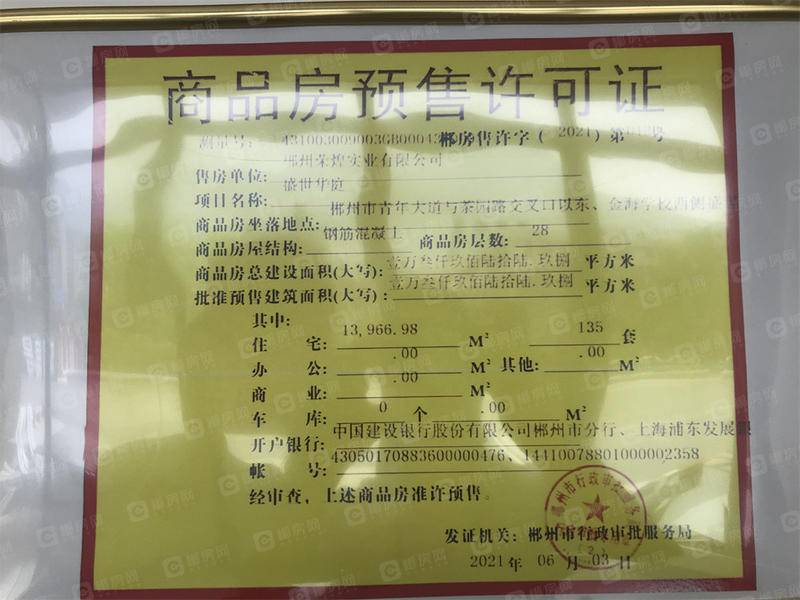 商品房预售许可证
测量号: 431003009003GB0004 郴房售许字( 2021)第 号
售房单位: 郴州荣煌实业有限公司
项目名称: 盛世华庭
商品房坐落地点: 郴州市青年大道与茶园路交叉口以东、金海学校西侧
商品房屋结构: 钢筋混凝土 商品房层数: 28
商品房总建设面积(大写): 壹万叁仟玖佰陆拾陆.玖捌 平方米
批准预售建筑面积(大写): 壹万叁仟玖佰陆拾陆.玖捌 平方米
其中:
住 宅: 13,966.98 M² 135 套
办 公: .00 M² 其他: .00 M²
商 业: .00 M²
车 库: 0 个 .00 M²
开户银行: 中国建设银行股份有限公司郴州市分行、上海浦东发展银
帐 号: 43050170883600000476、14410078801000002358
经审查,上述商品房准许预售。
发证机关: 郴州市行政审批服务局
2021 年 06 月 03 日
郴州市行政审批服务
郴房网